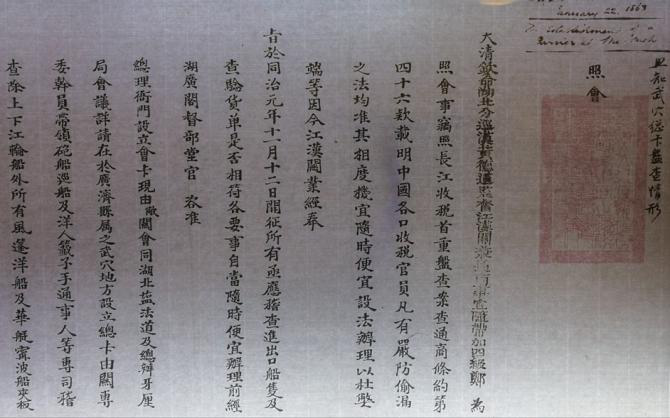 January 22. 1863
Establishment of a
Barrier at
知武穴總卡盤查情形
照會
大清欽命湖北分巡漢黃德道監督江漢關隨帶加四級鄭 為
照會事竊照長江收稅首重盤查案查通商條約第
四十六款載明中國各口收稅官員凡有嚴防偷漏
之法均准其相度機宜隨時便宜設法辦理以杜弊
端等因今江漢關業經奉
旨於同治元年十一月十二日開征所有亟應稽查進出口船隻及
查驗貨单是否相符各要事自當隨時便宜辦理前經
湖廣閣督部堂官 咨准
總理衙門設立會卡現由敝關會同湖北盐法道及總辦牙厘
局會議詳請在於廣濟縣属之武穴地方設立總卡由關專
委幹員帶領砲船巡船及洋人籤子手通事人等專司稽
查除上下江輪船外所有風篷洋船及華艇甯波船夾板